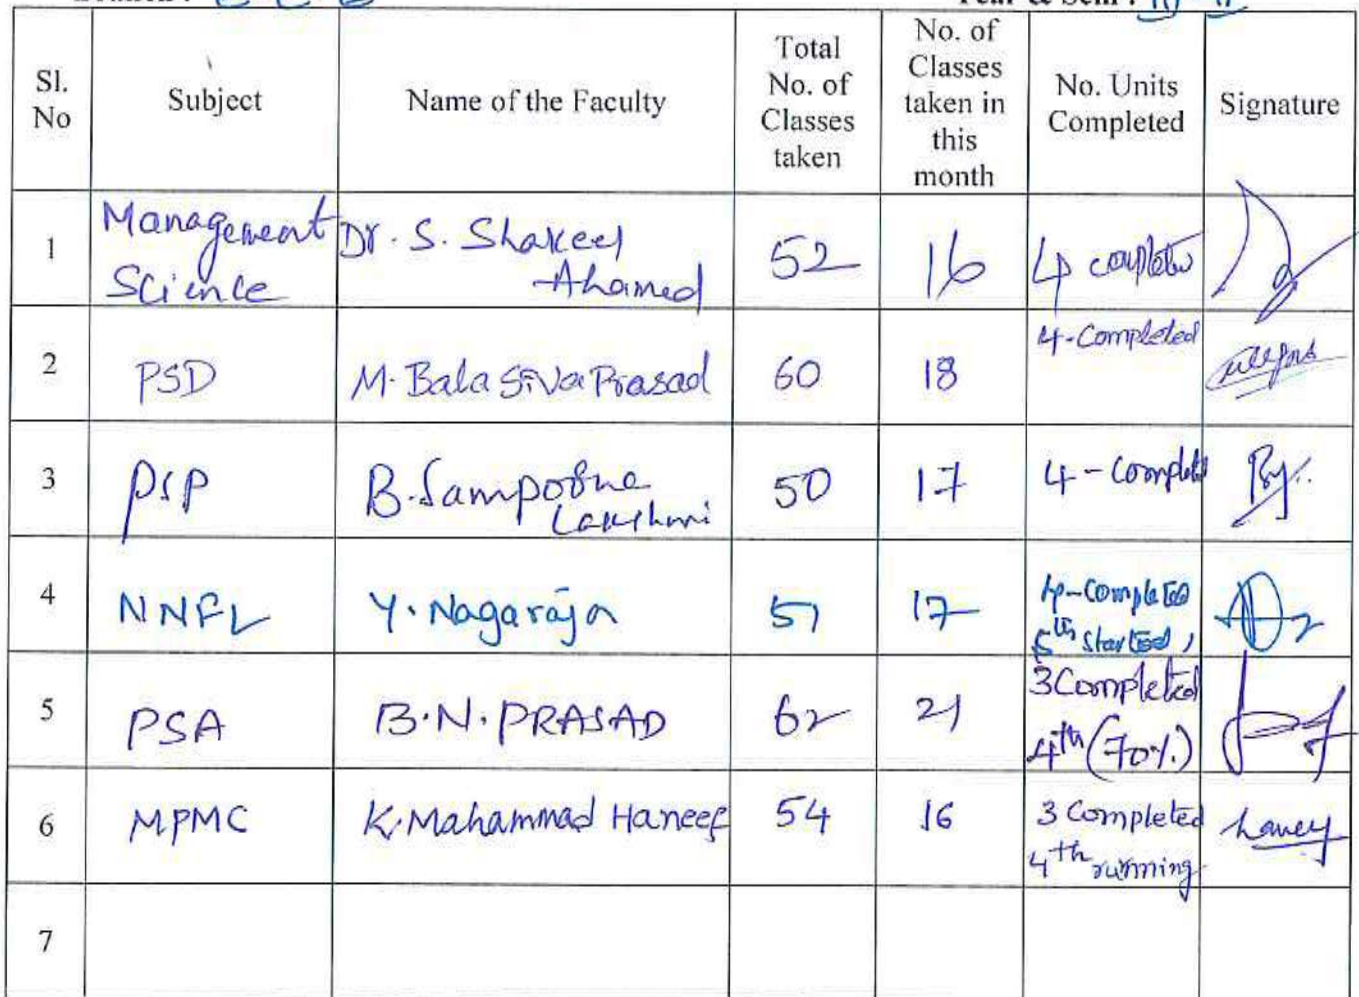 Sl. No
Subject
Name of the Faculty
Total No. of Classes taken
No. of Classes taken in this month
No. Units Completed
Signature
1
Management Science
Dr. S. Shakeel Ahamed
52
16
4 completed
2
PSD
M. Bala Siva Prasad
60
18
4-Completed
3
PSP
B. Sampoorna Lakshmi
50
17
4 - Complete
4
NNFL
Y. Nagaraja
51
17
4-Completed
5th started,
5
PSA
B.N. PRASAD
62
21
3 Completed
4th (70%)
6
MPMC
K. Mahammad Haneef
54
16
3 Completed
4th running
7